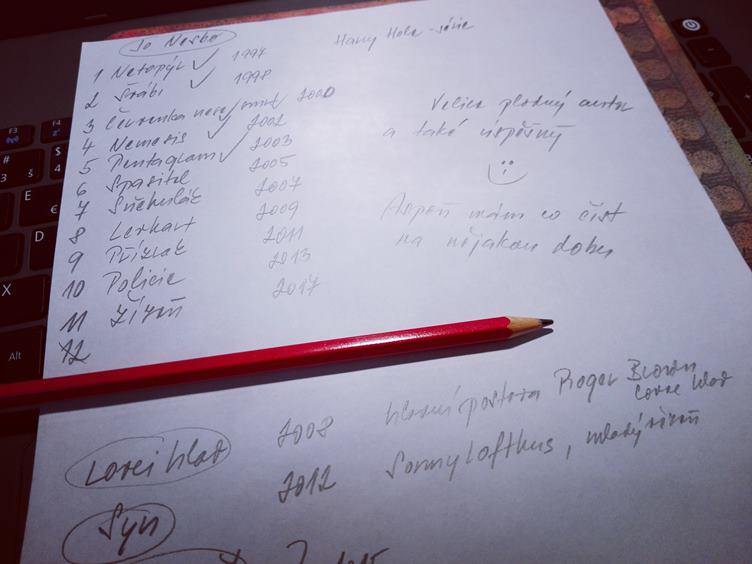 Jo Nesbo
Harry Hole - série
1 Netopýr ✓ 1997
2 Švábi ✓ 1998
3 Červenka 2000
4 Nemesis ✓ 2002
5 Pentagram ✓ 2003
6 Spasitel 2005
7 Sněhulák 2007
8 Levhart 2009
9 Přízrak 2011
10 Policie 2013
11 Žízeň 2017
12
Velice plodný autor
a také úspěšný
Aspoň mám co číst
na nějakou dobu
Lovci hlav 2008 hlavní postava Roger Brown
lovec hlav
Syn 2012 Sonny Lofthus, mladý vězeň
F3
F2
#
3
š
$
4
E
€
D
X
Alt